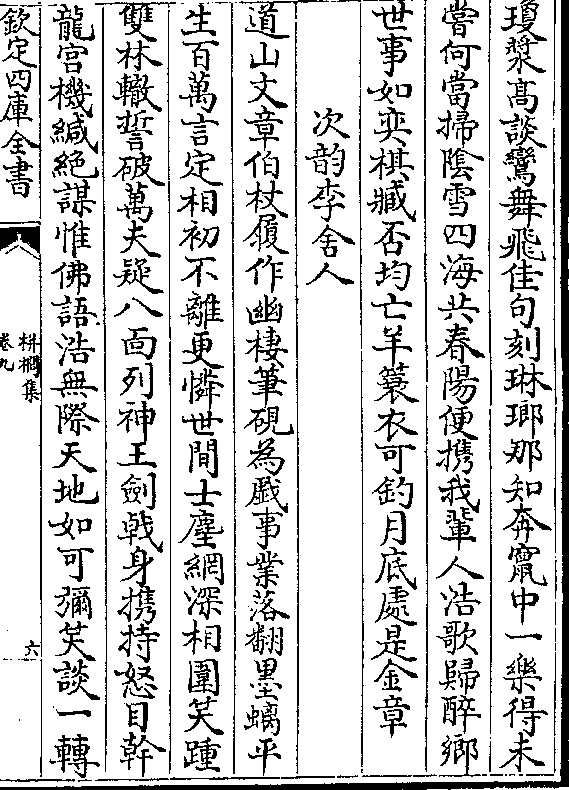 瓊漿高談鸞舞飛佳句刻琳瑯那知奔竄中一樂得未
嘗何當掃陰雪四海共春陽便携我輩人浩歌歸醉鄉
世事如奕棋臧否均亡羊簑衣可釣月底處是金章
次韵李舍人
道山文章伯杖履作幽棲筆硯為戲事業落翻墨螭平
生百萬言定相初不離更憐世間士塵網深相圍笑踵
雙林轍誓破萬夫疑八面列神王劍戟身携持怒目幹
龍宫機緘絕謀惟佛語浩無際天地如可彌笑談一轉
欽定四庫全書
栟櫚集
卷九
六